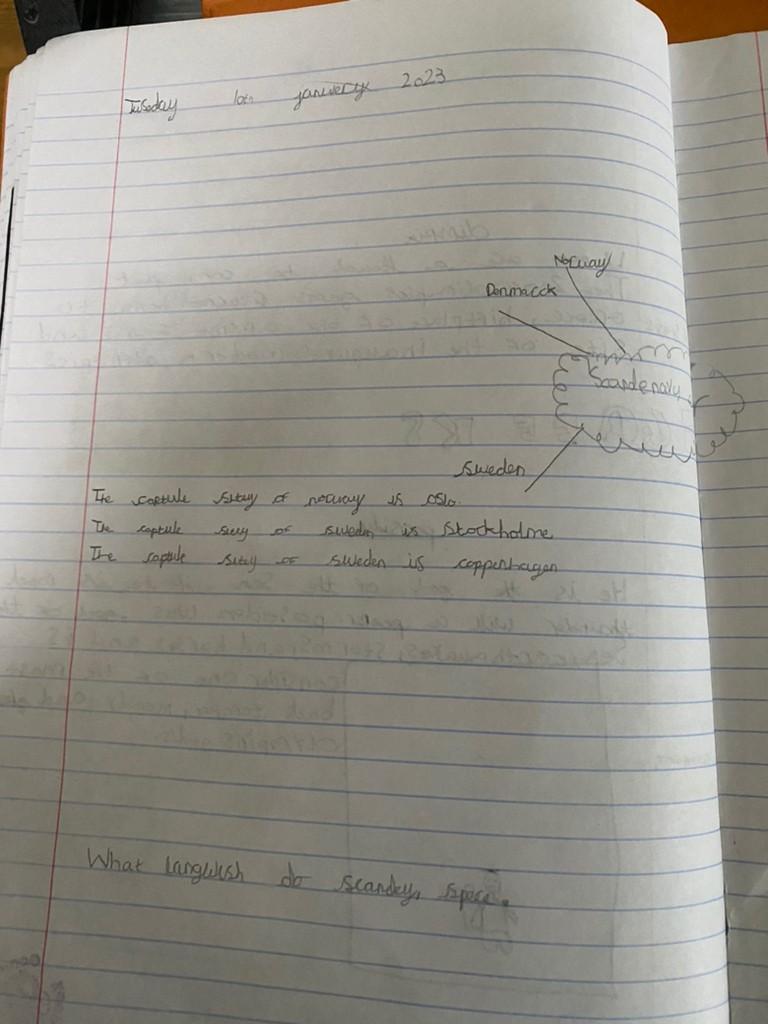 Tuseday 10th januuery 2023
Norway
Denmarck
Scandenavy
Sweden
The captule sitey of norway is oslo.
The captule sity of sweden is Stockholme
The captule sitey of sweden is coppenhagen
What langwish do scandey speec.